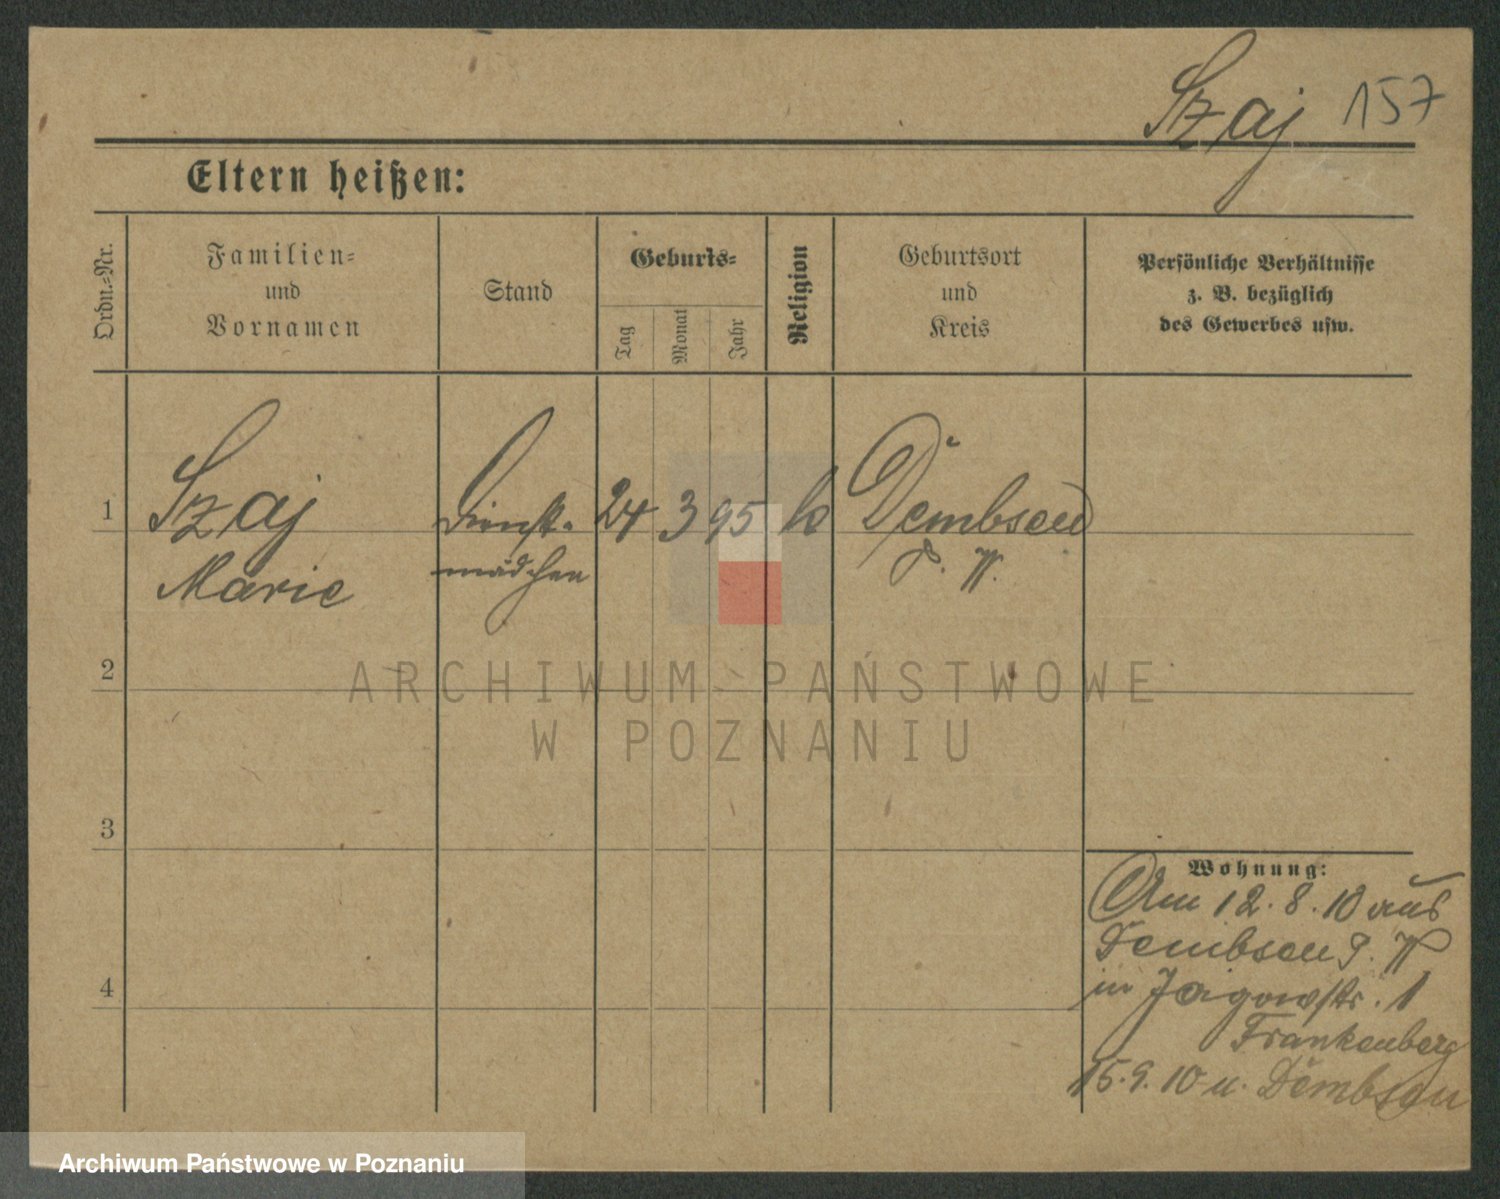 Szaj 157
Eltern heißen:
Ordn.=Nr.
Familien=
und
Vornamen
Stand
Geburts=
Tag
Monat
Jahr
Religion
Geburtsort
und
Kreis
Persönliche Verhältnisse
z. B. bezüglich
des Gewerbes usw.
1 Szaj Dienst- 24 3 95 k Dembsen
Marie mädchen P. W.
2
ARCHIWUM PAŃSTWOWE
W POZNANIU
3
4
Wohnung:
Am 12. 8. 10 aus
Dembsen P. W
in Jagowstr. 1
Frankenberg
15. 9. 10 n. Dembsen
Archiwum Państwowe w Poznaniu